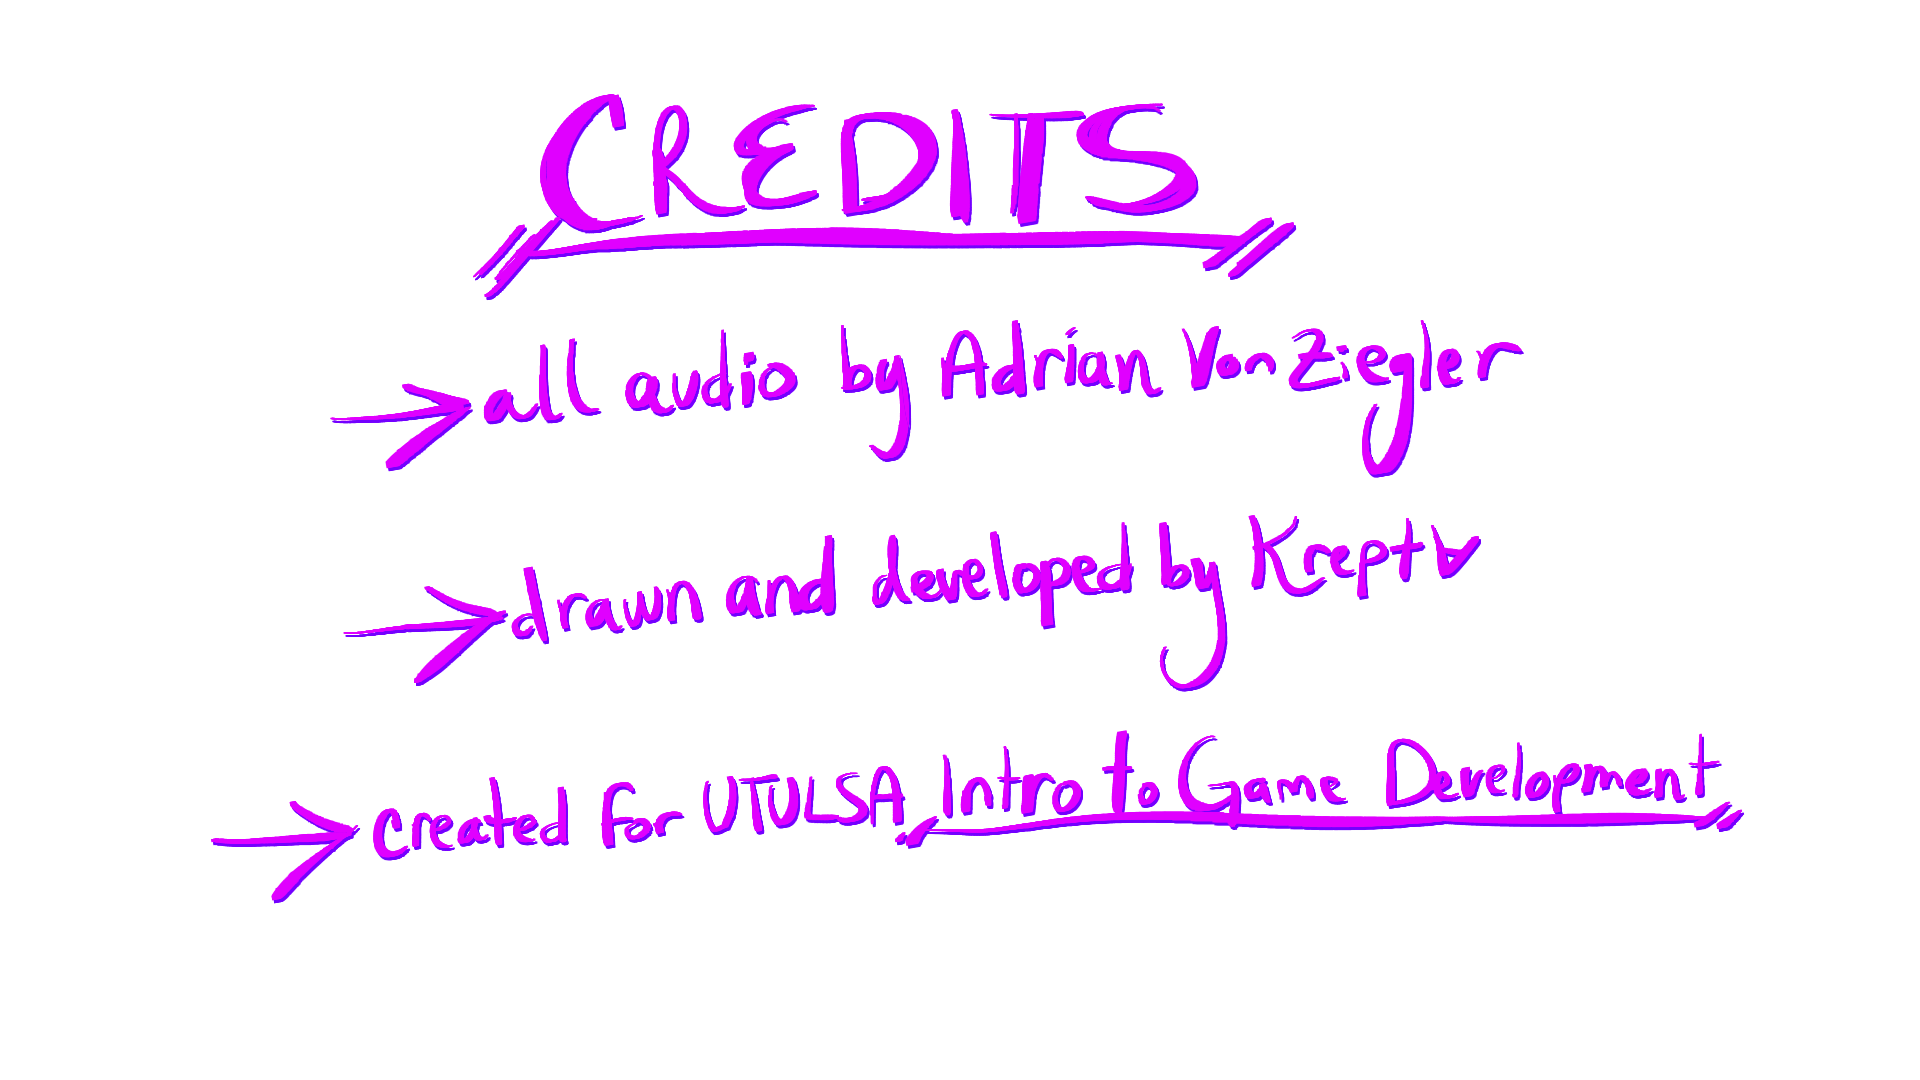 CREDITS
→all audio by Adrian Von Ziegler
→drawn and developed by Krept∀
→created for UTULSA Intro to Game Development